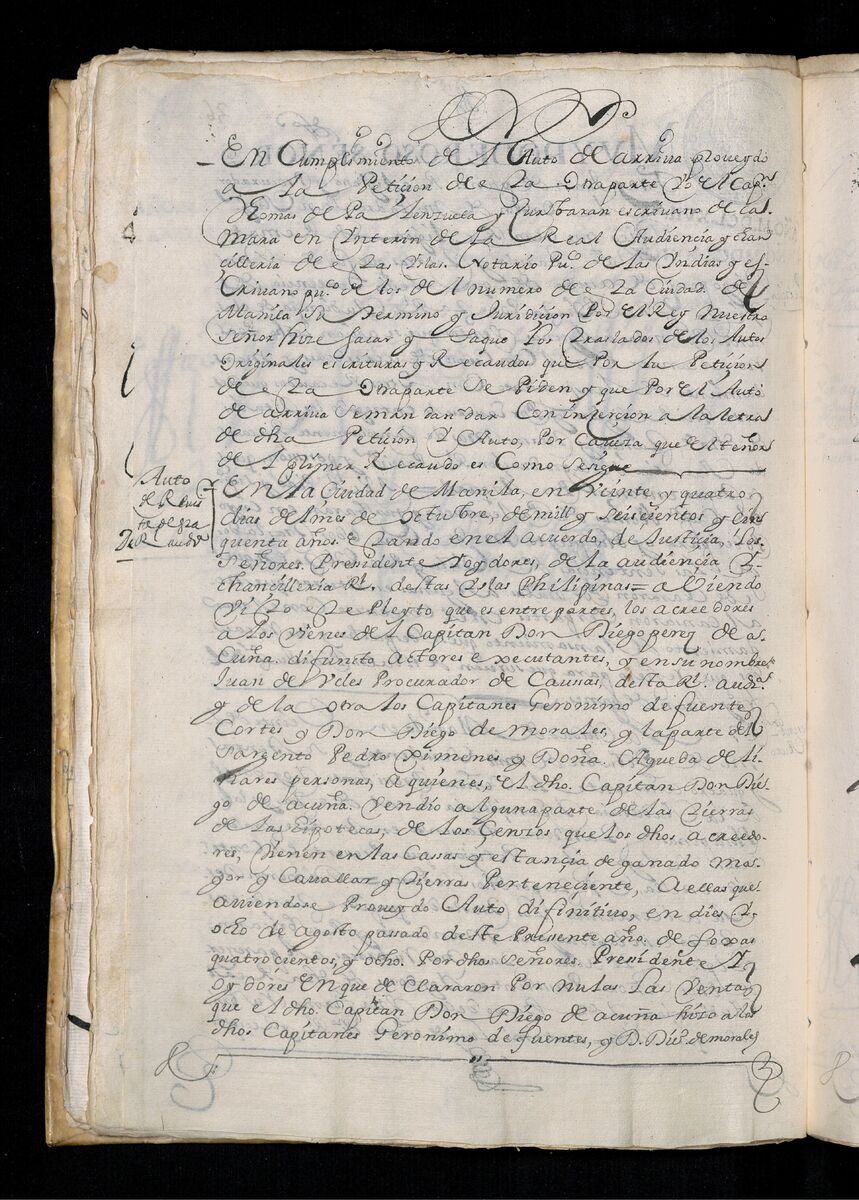 En Cumplimiento del Auto de arriva proveydo
a la Peticion de esta Otraparte Yo el Capn.
Thomas de Palenzuela y Zurbaran escrivano de ca-
mara en Ynterin de la Real Audiencia y chan
cilleria de estas Yslas. Notario Puco. de las Yndias y es-
crivano puco. de los del numero de esta Ciudad. de
Manila su termino y Juridicion Por el Rey Nuestro
Señor hize sacar y saque los traslados de los Autos
Originales escrituras y Recaudos que Por la Peticion
de esta Otraparte se Piden y que Por el Auto
de arriva se mandan dar Con insercion a la letra
de dha Peticion y Auto, Por Caveza que el tenor
del primer Recaudo es Como Sengue
Auto
de Revis
ta de esta
Rl. audª
En la Ciudad de Manila, en Veinte y quatro
dias del mes de Octubre, de mill y Seiscientos y cin
quenta años. estando en el acuerdo, de Justicia, Los
Señores. Presidente Yoydores, de la audiencia Y
chancilleria Rl. destas Yslas Philipinas= aViendo
Visto este Pleyto que es entre partes, los acreedores
a los Vienes del Capitan Don Diego perez de a-
Cuña. difuncto actores executantes, y en su nombre
Juan de Veles Procurador de Caussas, desta Rl. audiª.
y de la otra los Capitanes Geronimo de fuente
Cortes y Don Diego de morales, y la parte del
Sargento Pedro Ximenes y Doña. Agueda de li-
nares personas, a quienes, el dho. Capitan Don Die-
go de acuña. Vendio alguna parte de las tierras
de las Hipotecas, de los Çensos que los dhos. acreedo-
res, tienen en las Casas y estançia de ganado ma-
yor y Cavallar y tierras Perteneçiente, A ellas que
aviendose Proveydo Auto difinitivo, en dies Y-
ocho de agosto passado deste Presente año. de foxas
quatrocientos, y ocho. Por dhos Señores. Presidente Y
oydores En que declararon Por nulas Las Ventas
que el dho. Capitan Don Diego de acuña hizo a los
dhos Capitanes Geronimo de fuentes, y D. Dio. de morales